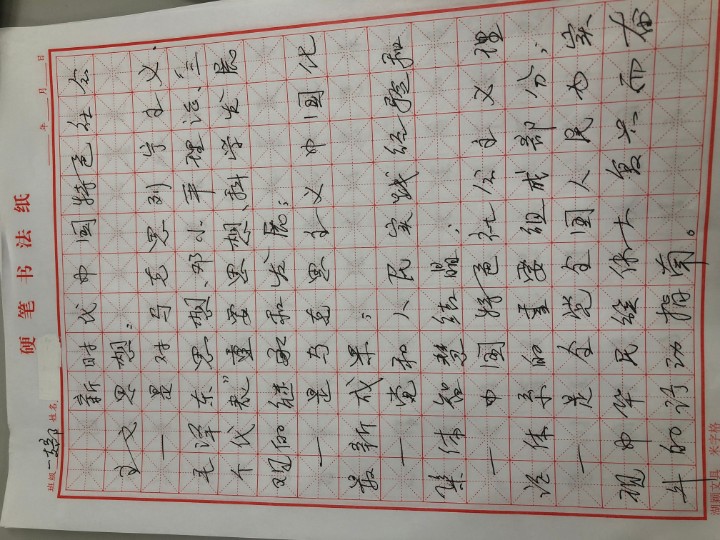 硬笔书法纸
班级 一支部 姓名 年 月 日
新时代中国特色社会
主义思想:
一是对马克思列宁主义、
毛泽东思想、邓小平理论、"三
个代表"重要思想、科学发展
观的继承和发展;
一是马克思主义中国化
最新成果;
一党和人民实践经验和
集体智慧结晶;
一中国特色社会主义理
论体系的重要组成部分;
一是全党全国人民为实
现中华民族伟大复兴而奋
斗的行动指南。
米字格